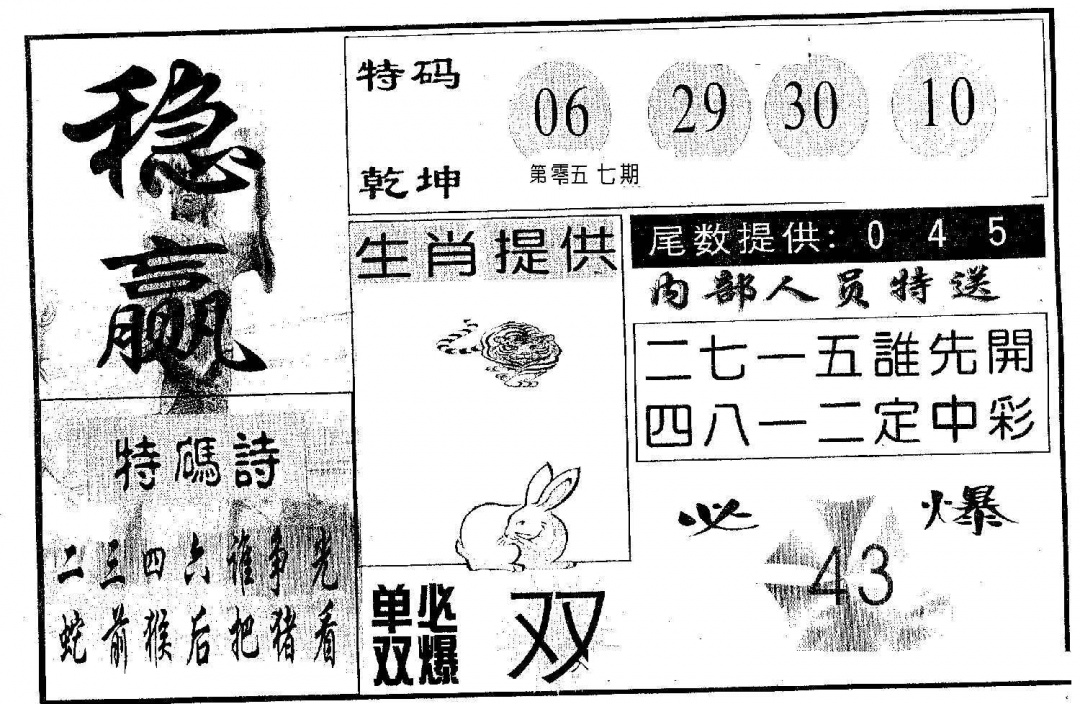 稳赢
特码
乾坤
06 29 30 10
第零五七期
生肖提供
尾数提供: 0 4 5
内部人员特送
二七一五誰先開
四八一二定中彩
特碼詩
二三四六谁争先
蛇前猴后把猪看
单双必爆
双
必爆
43